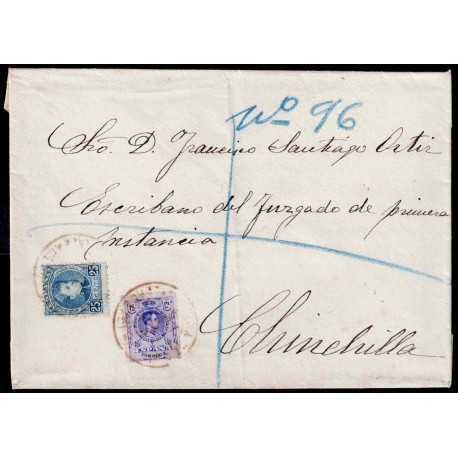 Nº 96
Sro. D. Francisco Santiago Ortiz
Escribano del Juzgado de primera
instancia
Chinchilla
25
25